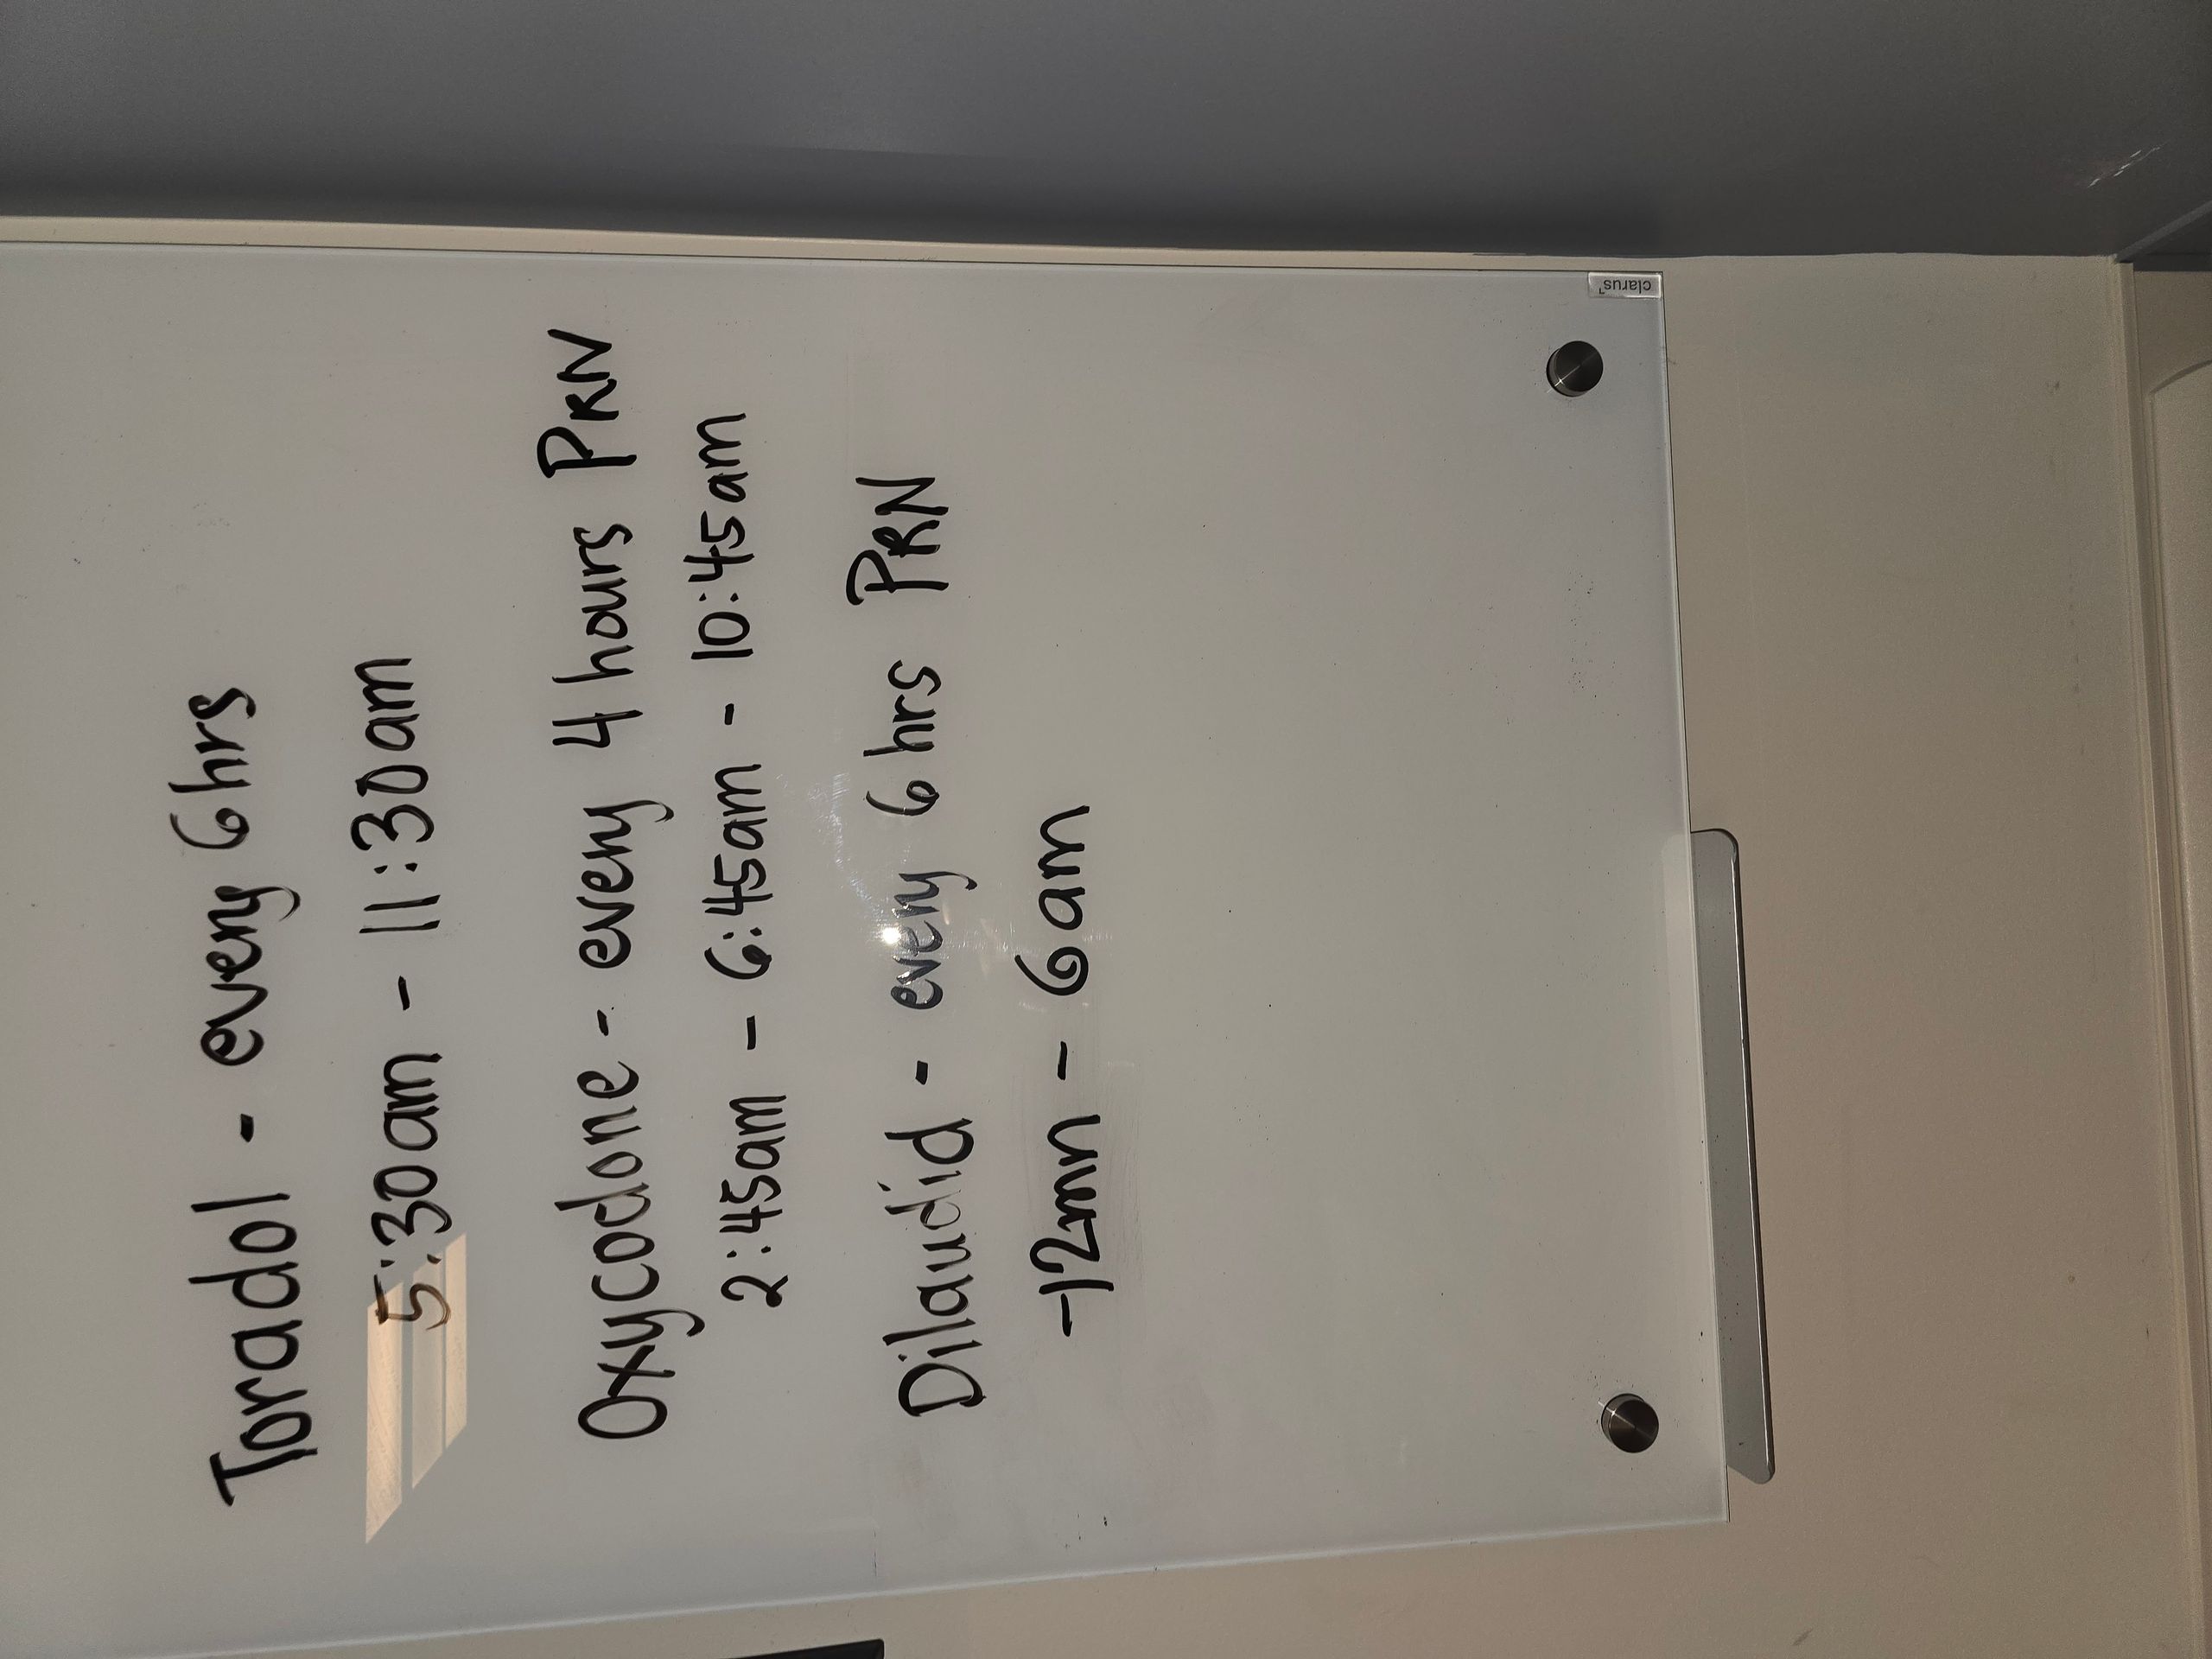 Toradol - every 6hrs
5:30am - 11:30am
Oxycodone - every 4 hours PRN
2:45am - 6:45am - 10:45am
Dilaudid - every 6 hrs PRN
-12mn - 6am
clarus